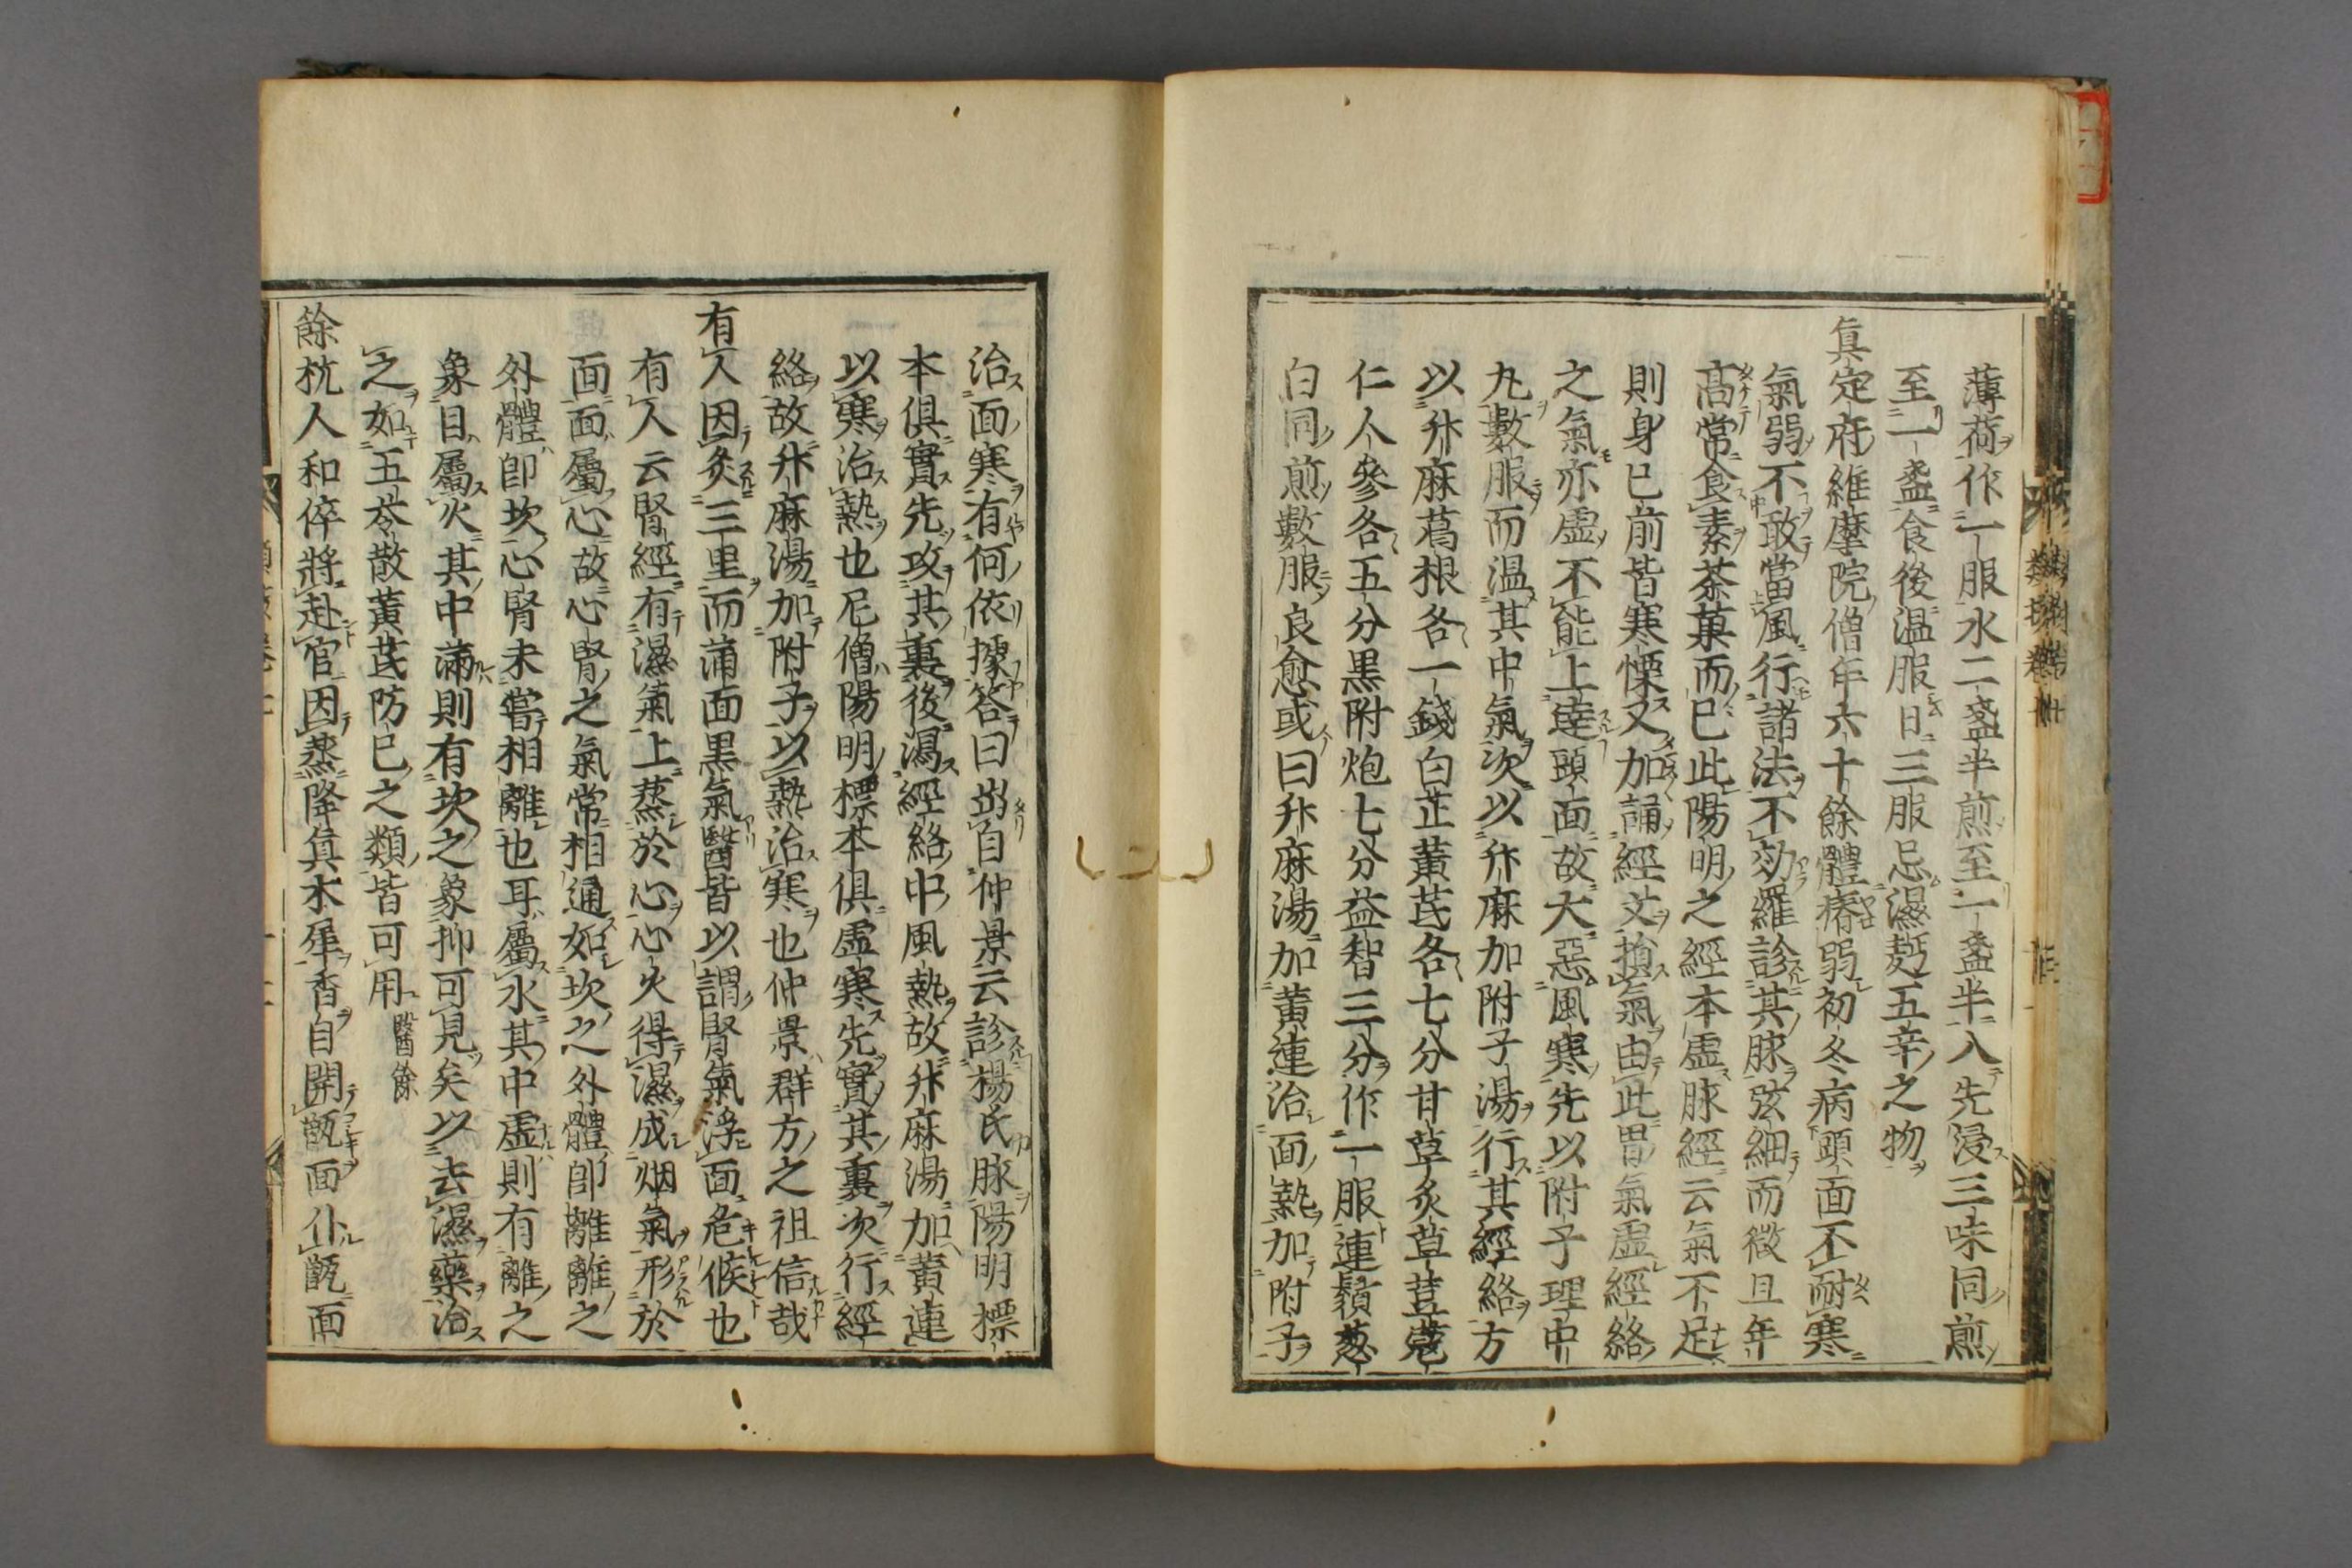 薄荷作一服水二盞半煎至一盞半入先浸三味同煎
至一盞食後温服日三服忌濕麪五辛之物
眞定府維摩院僧年六十餘體瘠弱初冬病頭面不耐寒
氣弱不敢當風行諸法不効羅診其脉弦細而微且年
髙常食素茶菓而已此陽明之經本虚脉經云氣不足
則身已前皆寒慄又加誦經文損氣由此胃氣虚經絡
之氣亦虚不能上達頭面故大惡風寒先以附子理中
丸數服而温其中氣次以升麻加附子湯行其經絡方
以升麻葛根各一錢白芷黄芪各七分甘草炙草荳蔲
仁人參各五分黒附炮七分益智三分作一服連鬚葱
白同煎數服良愈或曰升麻湯加黄連治面熱加附子
治面寒有何依據答曰出自仲景云診楊氏脉陽明標
本俱實先攻其裏後瀉經絡中風熱故升麻湯加黄連
以寒治熱也尼僧陽明標本俱虚寒先實其裏次行經
絡故升麻湯加附子以熱治寒也仲景群方之祖信哉
有人因灸三里而滿面黒氣醫皆以謂腎氣浮面危候也
有人云腎經有濕氣上蒸於心心火得濕成烟氣形於
面面屬心故心腎之氣常相通如坎之外體卽離離之
外體卽坎心腎未嘗相離也耳屬水其中虚則有離之
象目屬火其中滿則有坎之象抑可見矣以去濕藥治
之如五苓散黄芪防已之類皆可用醫餘
餘杭人和倅將赴官因蒸降眞木犀香自開甑面仆甑面